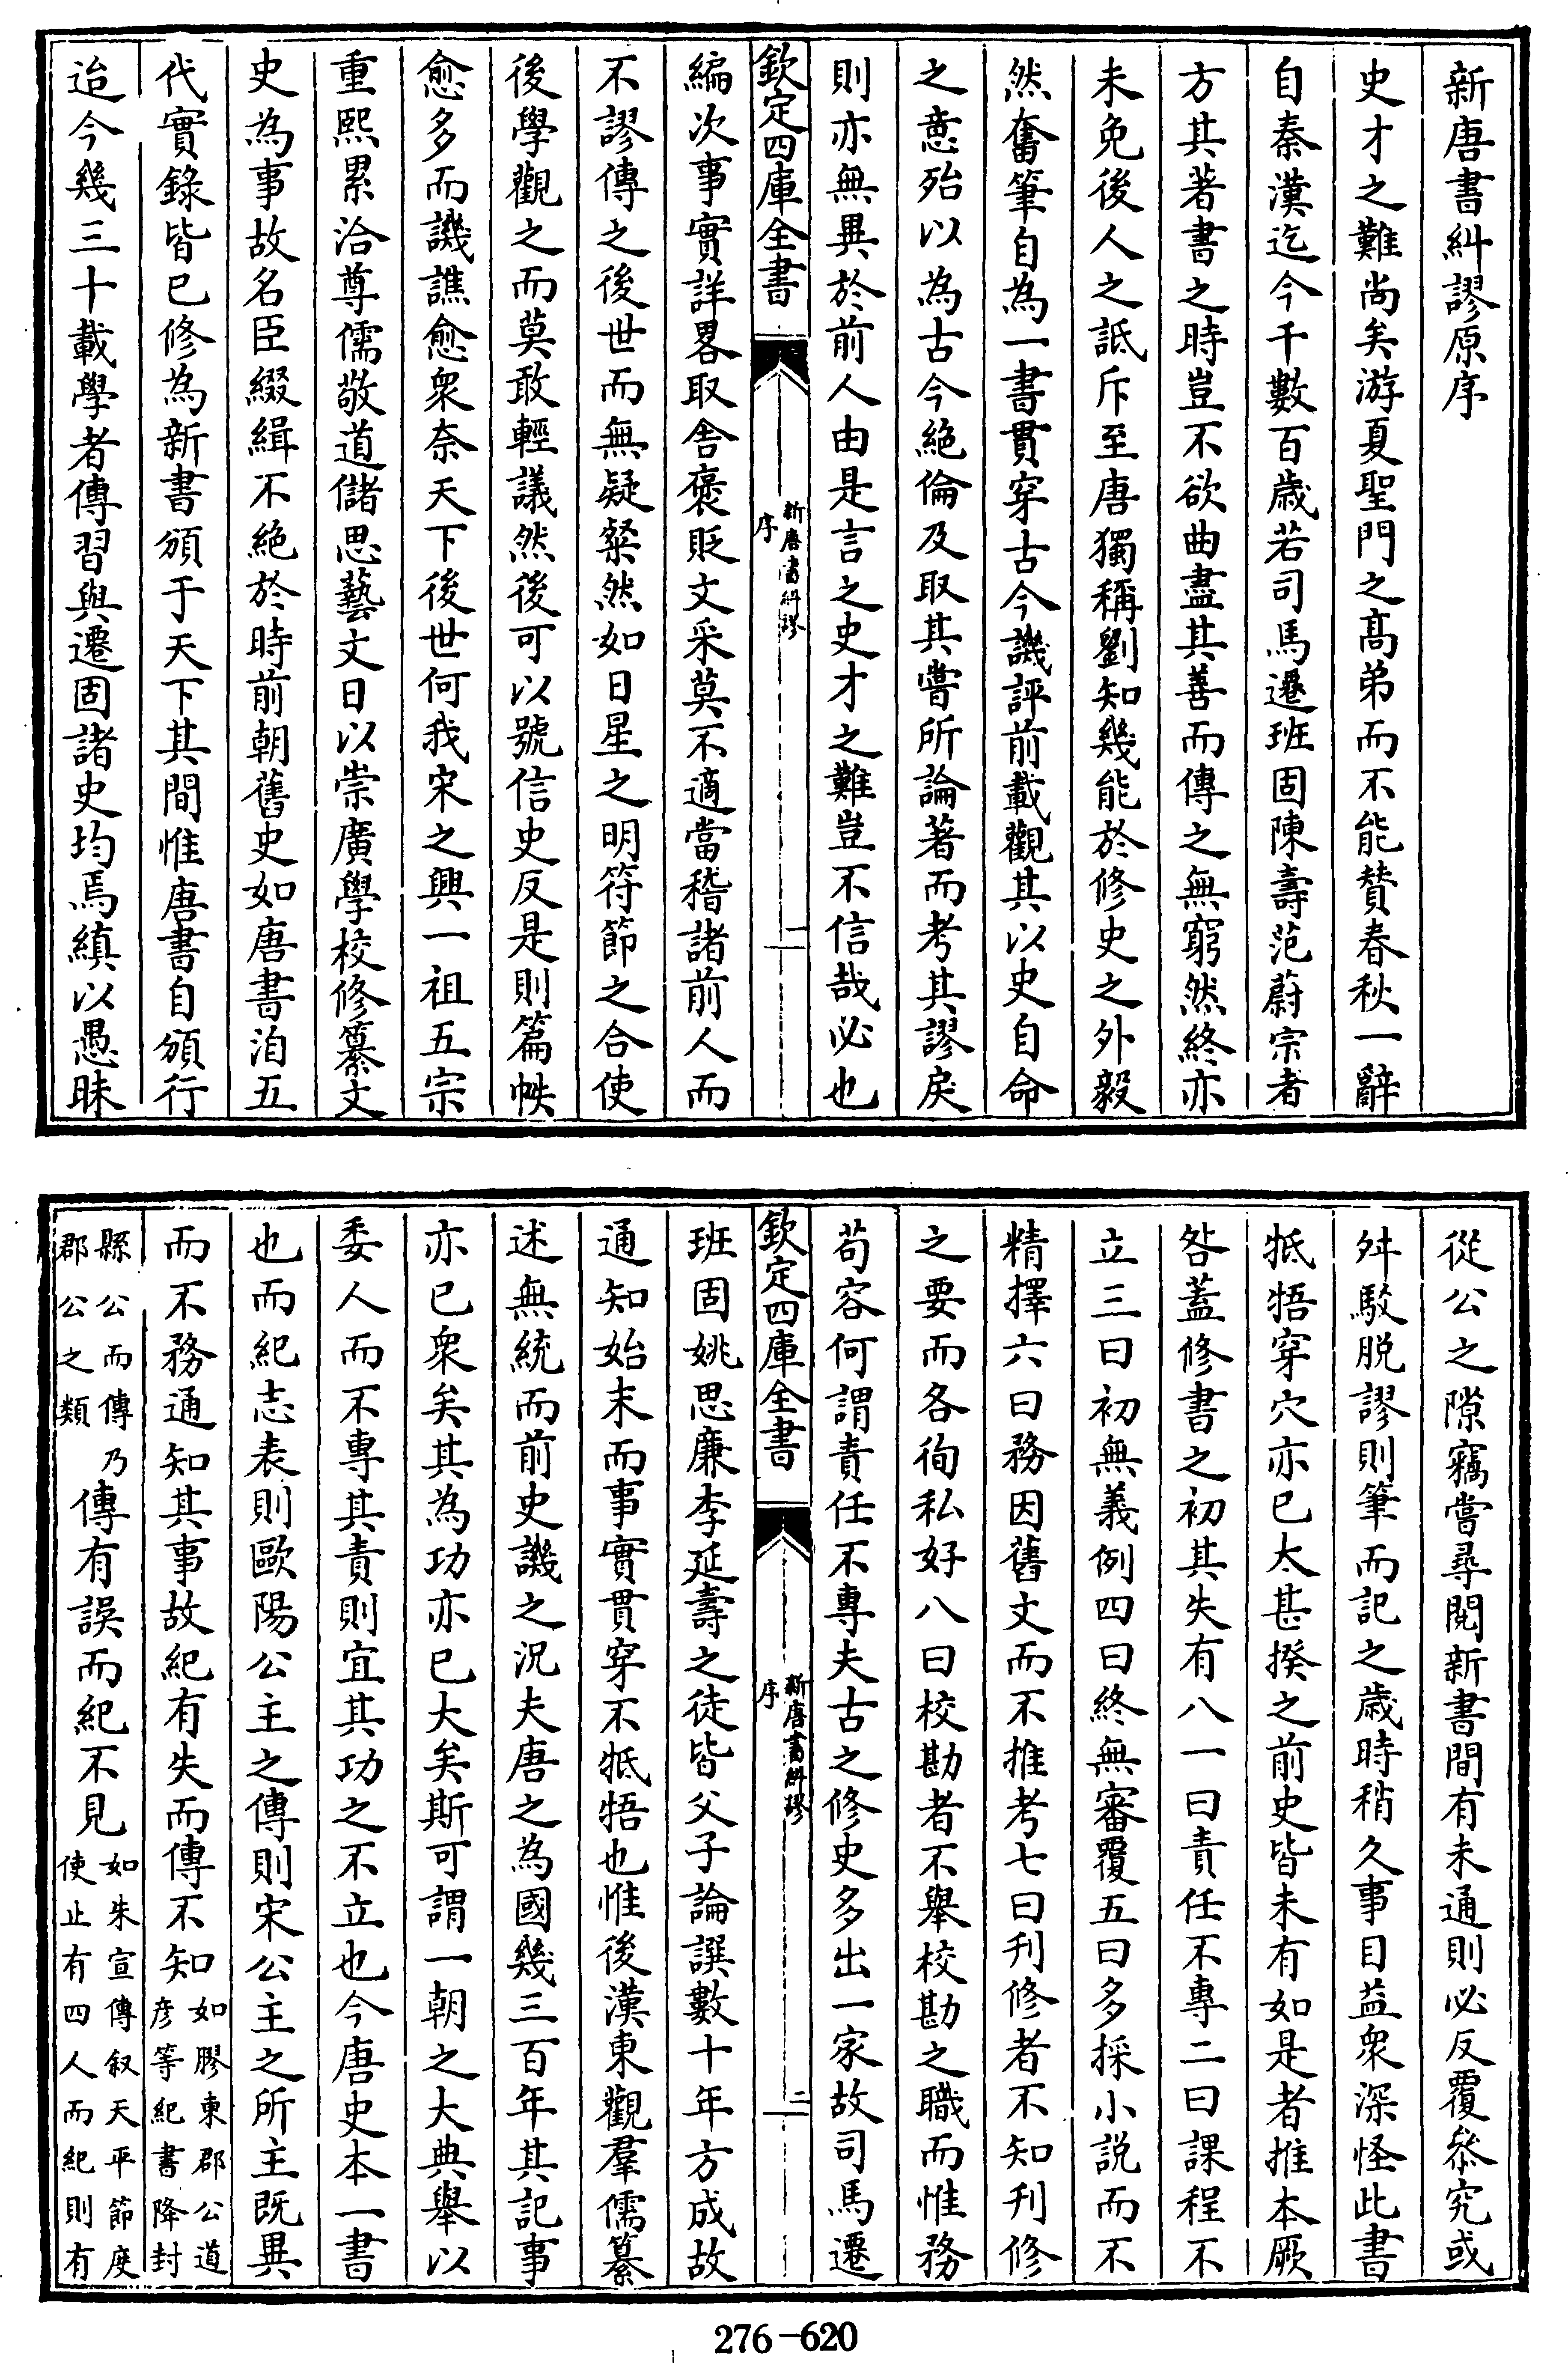 新唐書糾謬原序
史才之難尚矣游夏聖門之髙弟而不能賛春秋一辭
自秦漢迄今千數百歲若司馬遷班固陳壽范蔚宗者
方其著書之時豈不欲曲盡其善而傳之無窮然終亦
未免後人之詆斥至唐獨稱劉知幾能於修史之外毅
然奮筆自為一書貫穿古今譏評前載觀其以史自命
之意殆以為古今絶倫及取其嘗所論著而考其謬戾
則亦無異於前人由是言之史才之難豈不信哉必也
欽定四庫全書
新唐書糾謬
序
一
編次事實詳畧取舍褒貶文采莫不適當稽諸前人而
不謬傳之後世而無疑粲然如日星之明符節之合使
後學觀之而莫敢輕議然後可以號信史反是則篇帙
愈多而譏譙愈衆奈天下後世何我宋之興一祖五宗
重熙累洽尊儒敬道儲思藝文日以崇廣學校修纂文
史為事故名臣綴緝不絶於時前朝舊史如唐書洎五
代實錄皆已修為新書頒于天下其間惟唐書自頒行
迨今幾三十載學者傳習與遷固諸史均焉縝以愚昧
從公之隙竊嘗尋閱新書間有未通則必反覆叅究或
舛駁脱謬則筆而記之歲時稍久事目益衆深怪此書
牴牾穿穴亦已太甚揆之前史皆未有如是者推本厥
咎蓋修書之初其失有八一曰責任不專二曰課程不
立三曰初無義例四曰終無審覆五曰多採小説而不
精擇六曰務因舊文而不推考七曰刋修者不知刋修
之要而各徇私好八曰校勘者不舉校勘之職而惟務
苟容何謂責任不專夫古之修史多出一家故司馬遷
欽定四庫全書
新唐書糾謬
序
二
班固姚思廉李延壽之徒皆父子論譔數十年方成故
通知始末而事實貫穿不牴牾也惟後漢東觀羣儒纂
述無統而前史譏之況夫唐之為國幾三百年其記事
亦已衆矣其為功亦已大矣斯可謂一朝之大典舉以
委人而不專其責則宜其功之不立也今唐史本一書
也而紀志表則歐陽公主之傳則宋公主之所主既異
而不務通知其事故紀有失而傳不知如膠東郡公道彦等紀書降封
縣公而傳乃郡公之類傳有誤而紀不見如朱宣傳叙天平節度使止有四人而紀則有
276-620